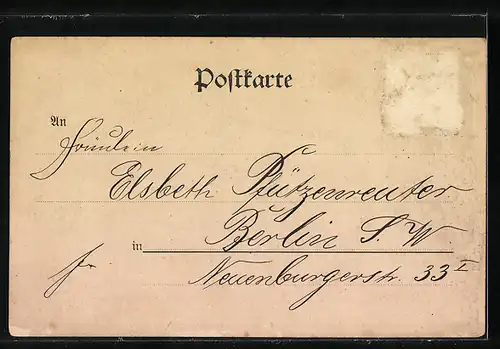 Postkarte
An
Fräulein
Elsbeth Pfützenreuter
in Berlin S. W.
fr. Neuenburgerstr. 33 I